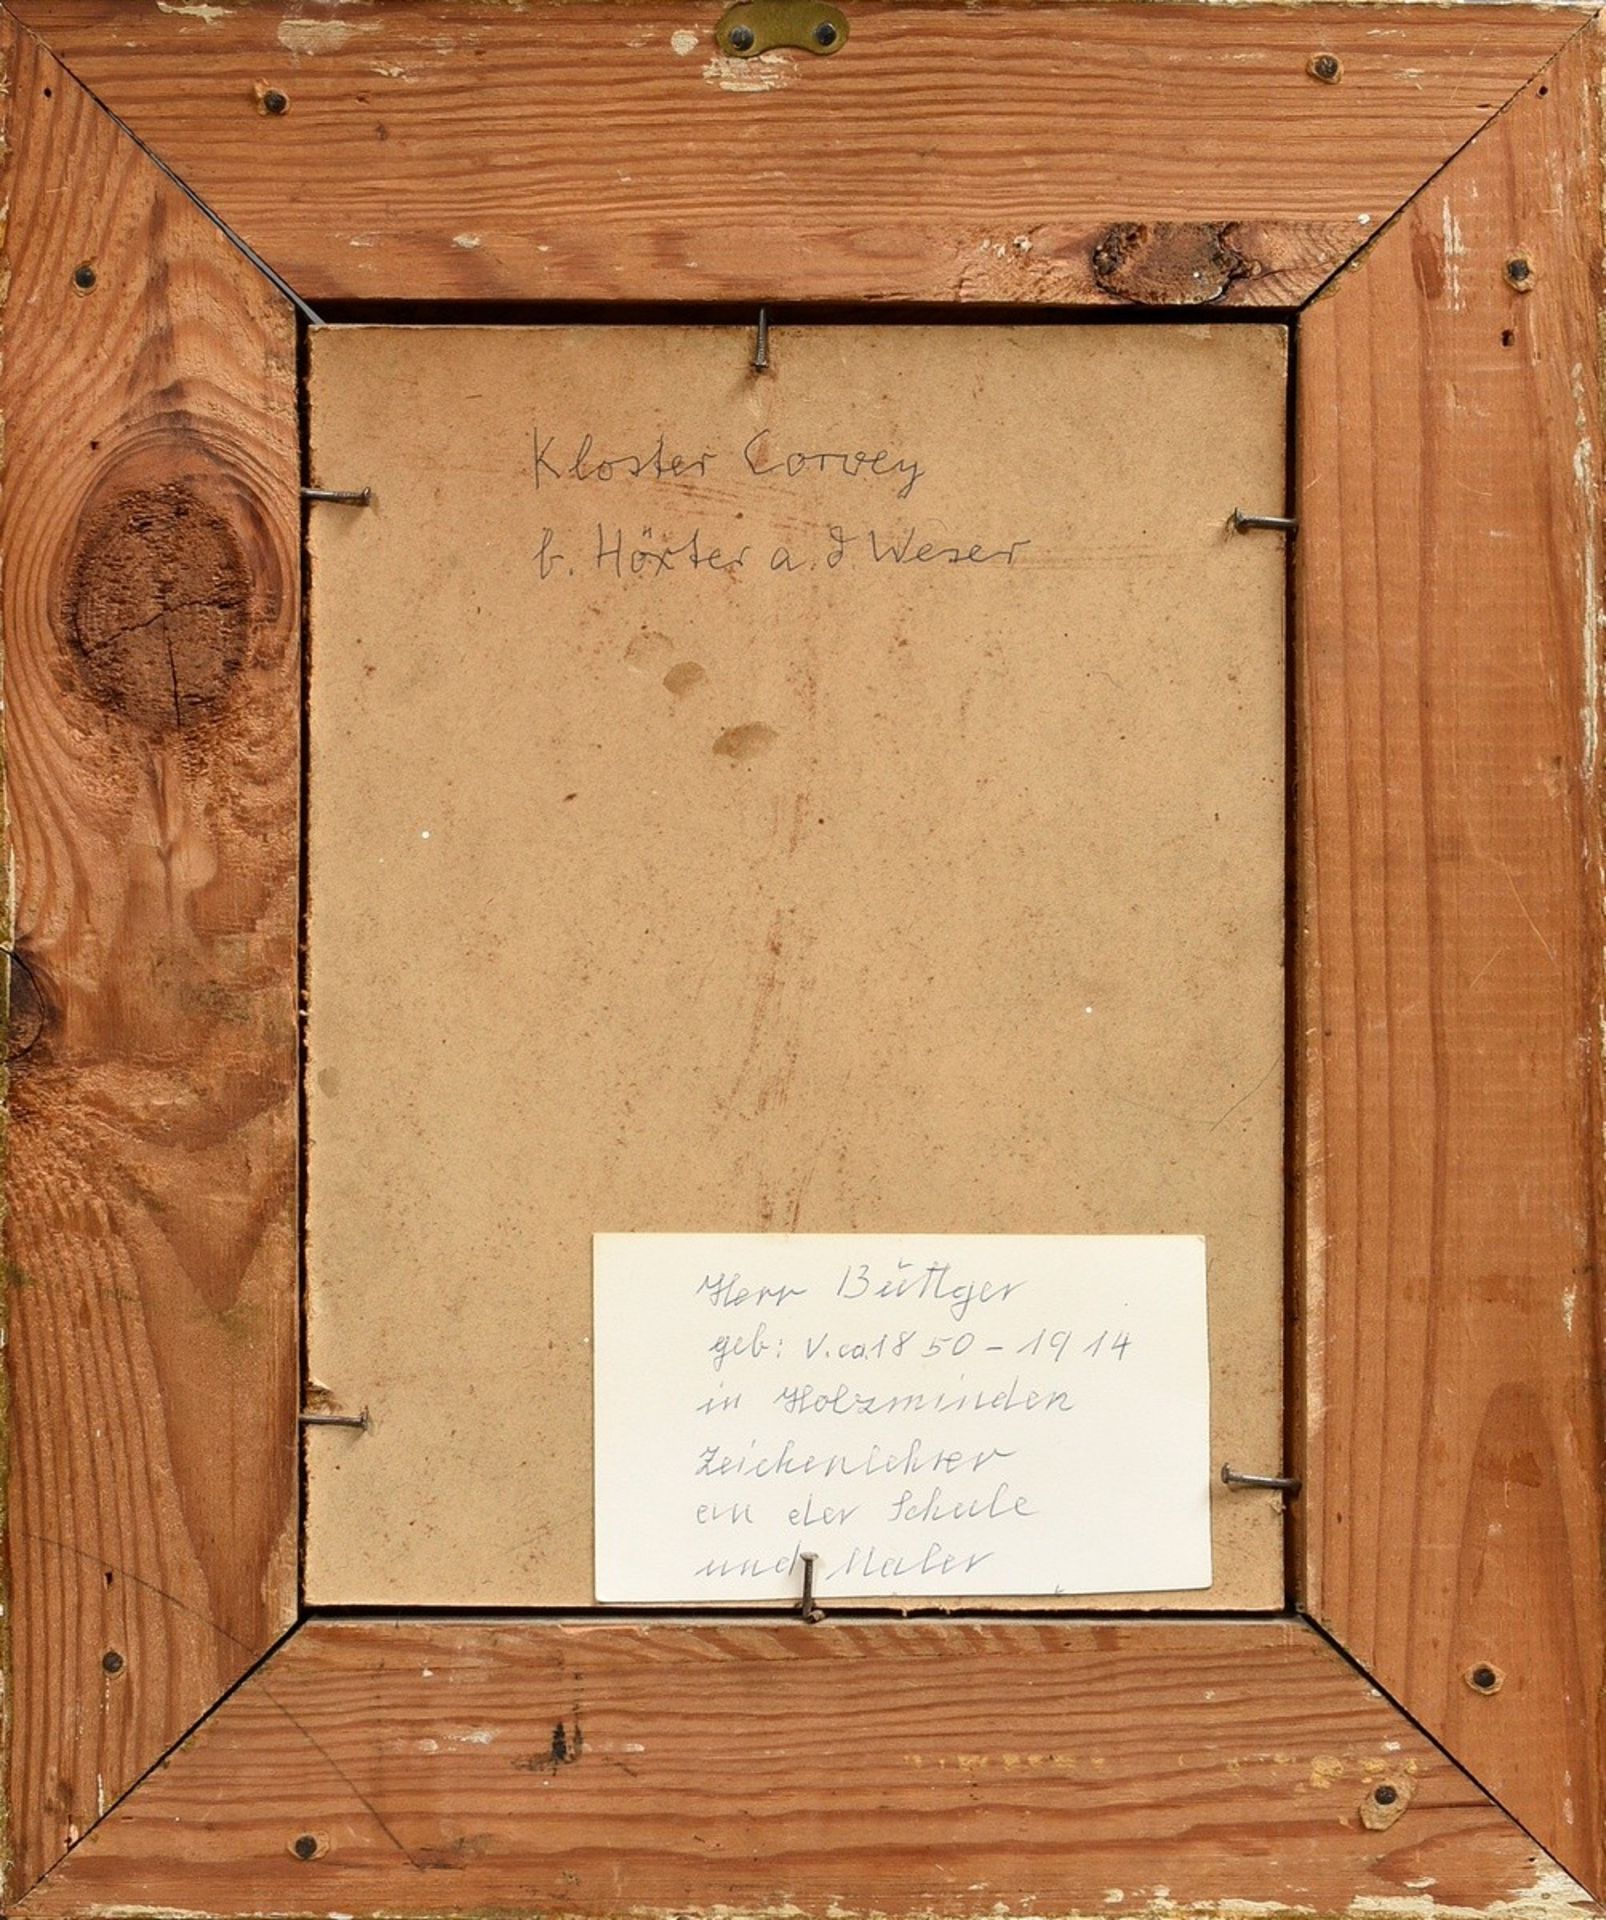 Kloster Corvey
b. Höxter a. d. Weser
Herr Büttger
geb: v. ca. 1850 - 1914
in Holzminden
Zeichenlehrer
an der Schule
und Maler